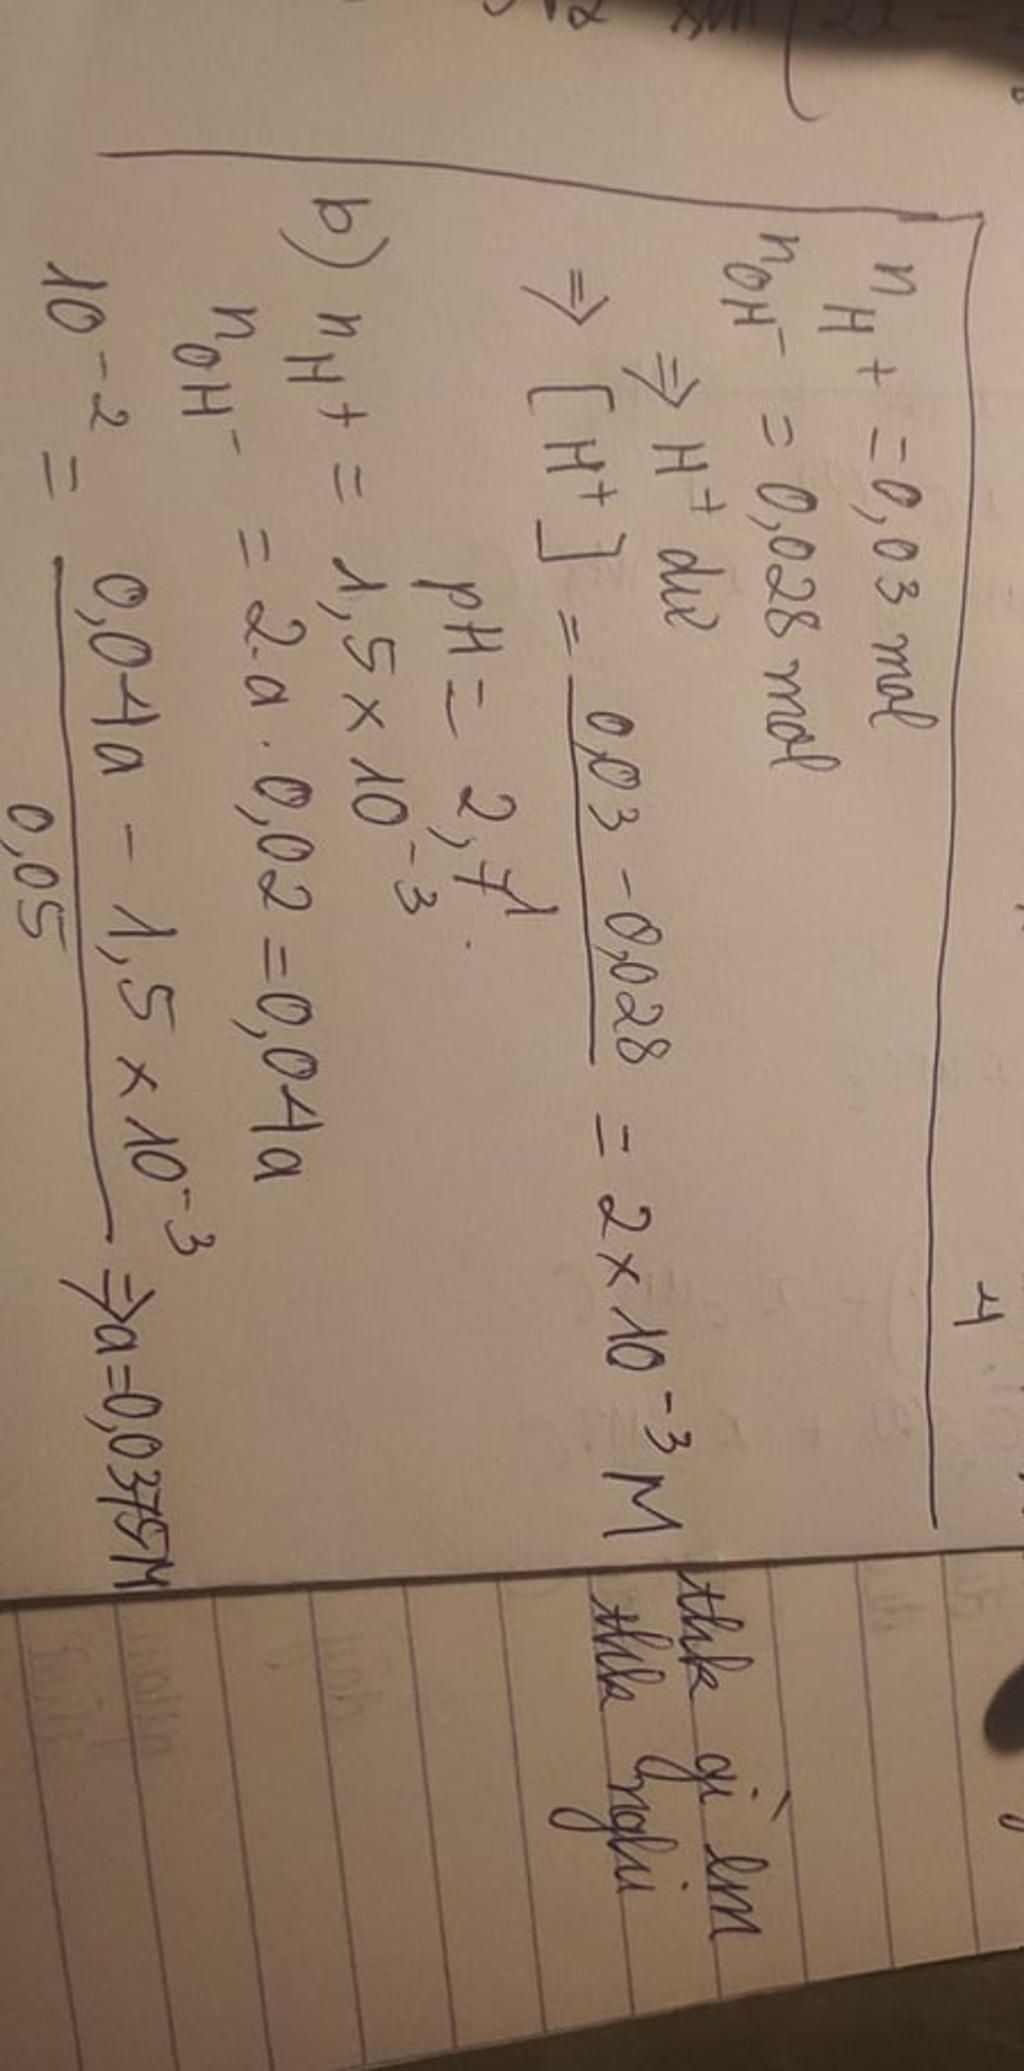 4
n_H+ = 0,03 mol
n_OH- = 0,028 mol
⇒ H+ dư
⇒ [H+] = (0,03 - 0,028) / = 2 × 10^-3 M
pH = 2,7
b) n_H+ = 1,5 × 10^-3
n_OH- = 2.a.0,02 = 0,04a
10^-2 = (0,04a - 1,5 × 10^-3) / 0,05 ⇒ a = 0,0375M
thk gì lm
thk nghi